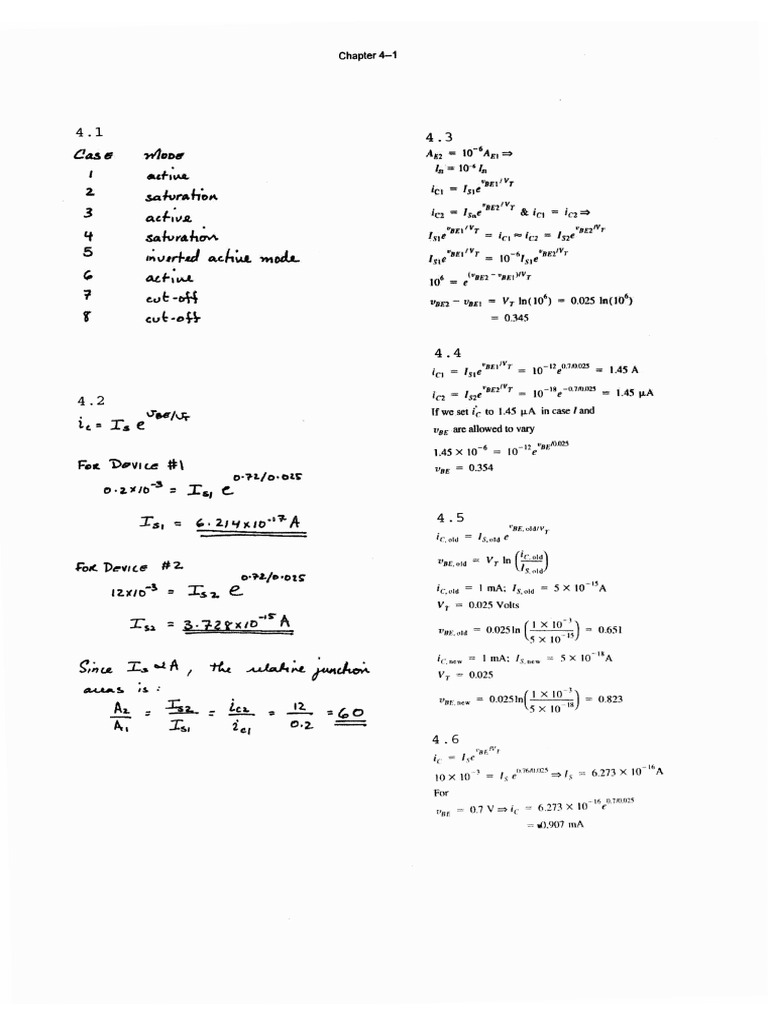 Chapter 4–1
4.1
Case Mode
1 active
2 saturation
3 active
4 saturation
5 inverted active mode
6 active
7 cut-off
8 cut-off
4.2
i_c = I_s e^{V_BE/V_T}
For Device #1
0.2×10^{-3} = I_{S1} e^{0.72/0.025}
I_{S1} = 6.214×10^{-17} A
For Device #2
12×10^{-3} = I_{S2} e^{0.72/0.025}
I_{S2} = 3.728×10^{-15} A
Since I_s α A, the relative junction
areas is:
A_2/A_1 = I_{S2}/I_{S1} = i_{C2}/i_{C1} = 12/0.2 = 60
4.3
A_{E2} = 10^{-6} A_{E1} ⇒
I_n = 10^{-6} I_n
i_{C1} = I_{S1} e^{v_{BE1}/V_T}
i_{C2} = I_{Sn} e^{v_{BE2}/V_T} & i_{C1} = i_{C2} ⇒
I_{S1} e^{v_{BE1}/V_T} = i_{C1} ≈ i_{C2} = I_{S2} e^{v_{BE2}/V_T}
I_{S1} e^{v_{BE1}/V_T} = 10^{-6} I_{S1} e^{v_{BE2}/V_T}
10^6 = e^{(v_{BE2} – v_{BE1})/V_T}
v_{BE2} – v_{BE1} = V_T ln(10^6) = 0.025 ln(10^6)
= 0.345
4.4
i_{C1} = I_{S1} e^{v_{BE1}/V_T} = 10^{-12} e^{0.7/0.025} = 1.45 A
i_{C2} = I_{S2} e^{v_{BE2}/V_T} = 10^{-18} e^{-0.7/0.025} = 1.45 μA
If we set i_C to 1.45 μA in case I and
v_{BE} are allowed to vary
1.45 × 10^{-6} = 10^{-12} e^{v_{BE}/0.025}
v_{BE} = 0.354
4.5
i_{C, old} = I_{S, old} e^{v_{BE, old}/V_T}
v_{BE, old} = V_T ln (i_{C, old}/I_{S, old})
i_{C, old} = 1 mA; I_{S, old} = 5 × 10^{-15} A
V_T = 0.025 Volts
v_{BE, old} = 0.025 ln (1 × 10^{-3}/5 × 10^{-15}) = 0.651
i_{C, new} = 1 mA; I_{S, new} = 5 × 10^{-18} A
V_T = 0.025
v_{BE, new} = 0.025 ln (1 × 10^{-3}/5 × 10^{-18}) = 0.823
4.6
i_C = I_S e^{v_{BE}/V_T}
10 × 10^{-3} = I_S e^{0.76/0.025} ⇒ I_S = 6.273 × 10^{-16} A
For
v_{BE} = 0.7 V ⇒ i_C = 6.273 × 10^{-16} e^{0.7/0.025}
= 0.907 mA